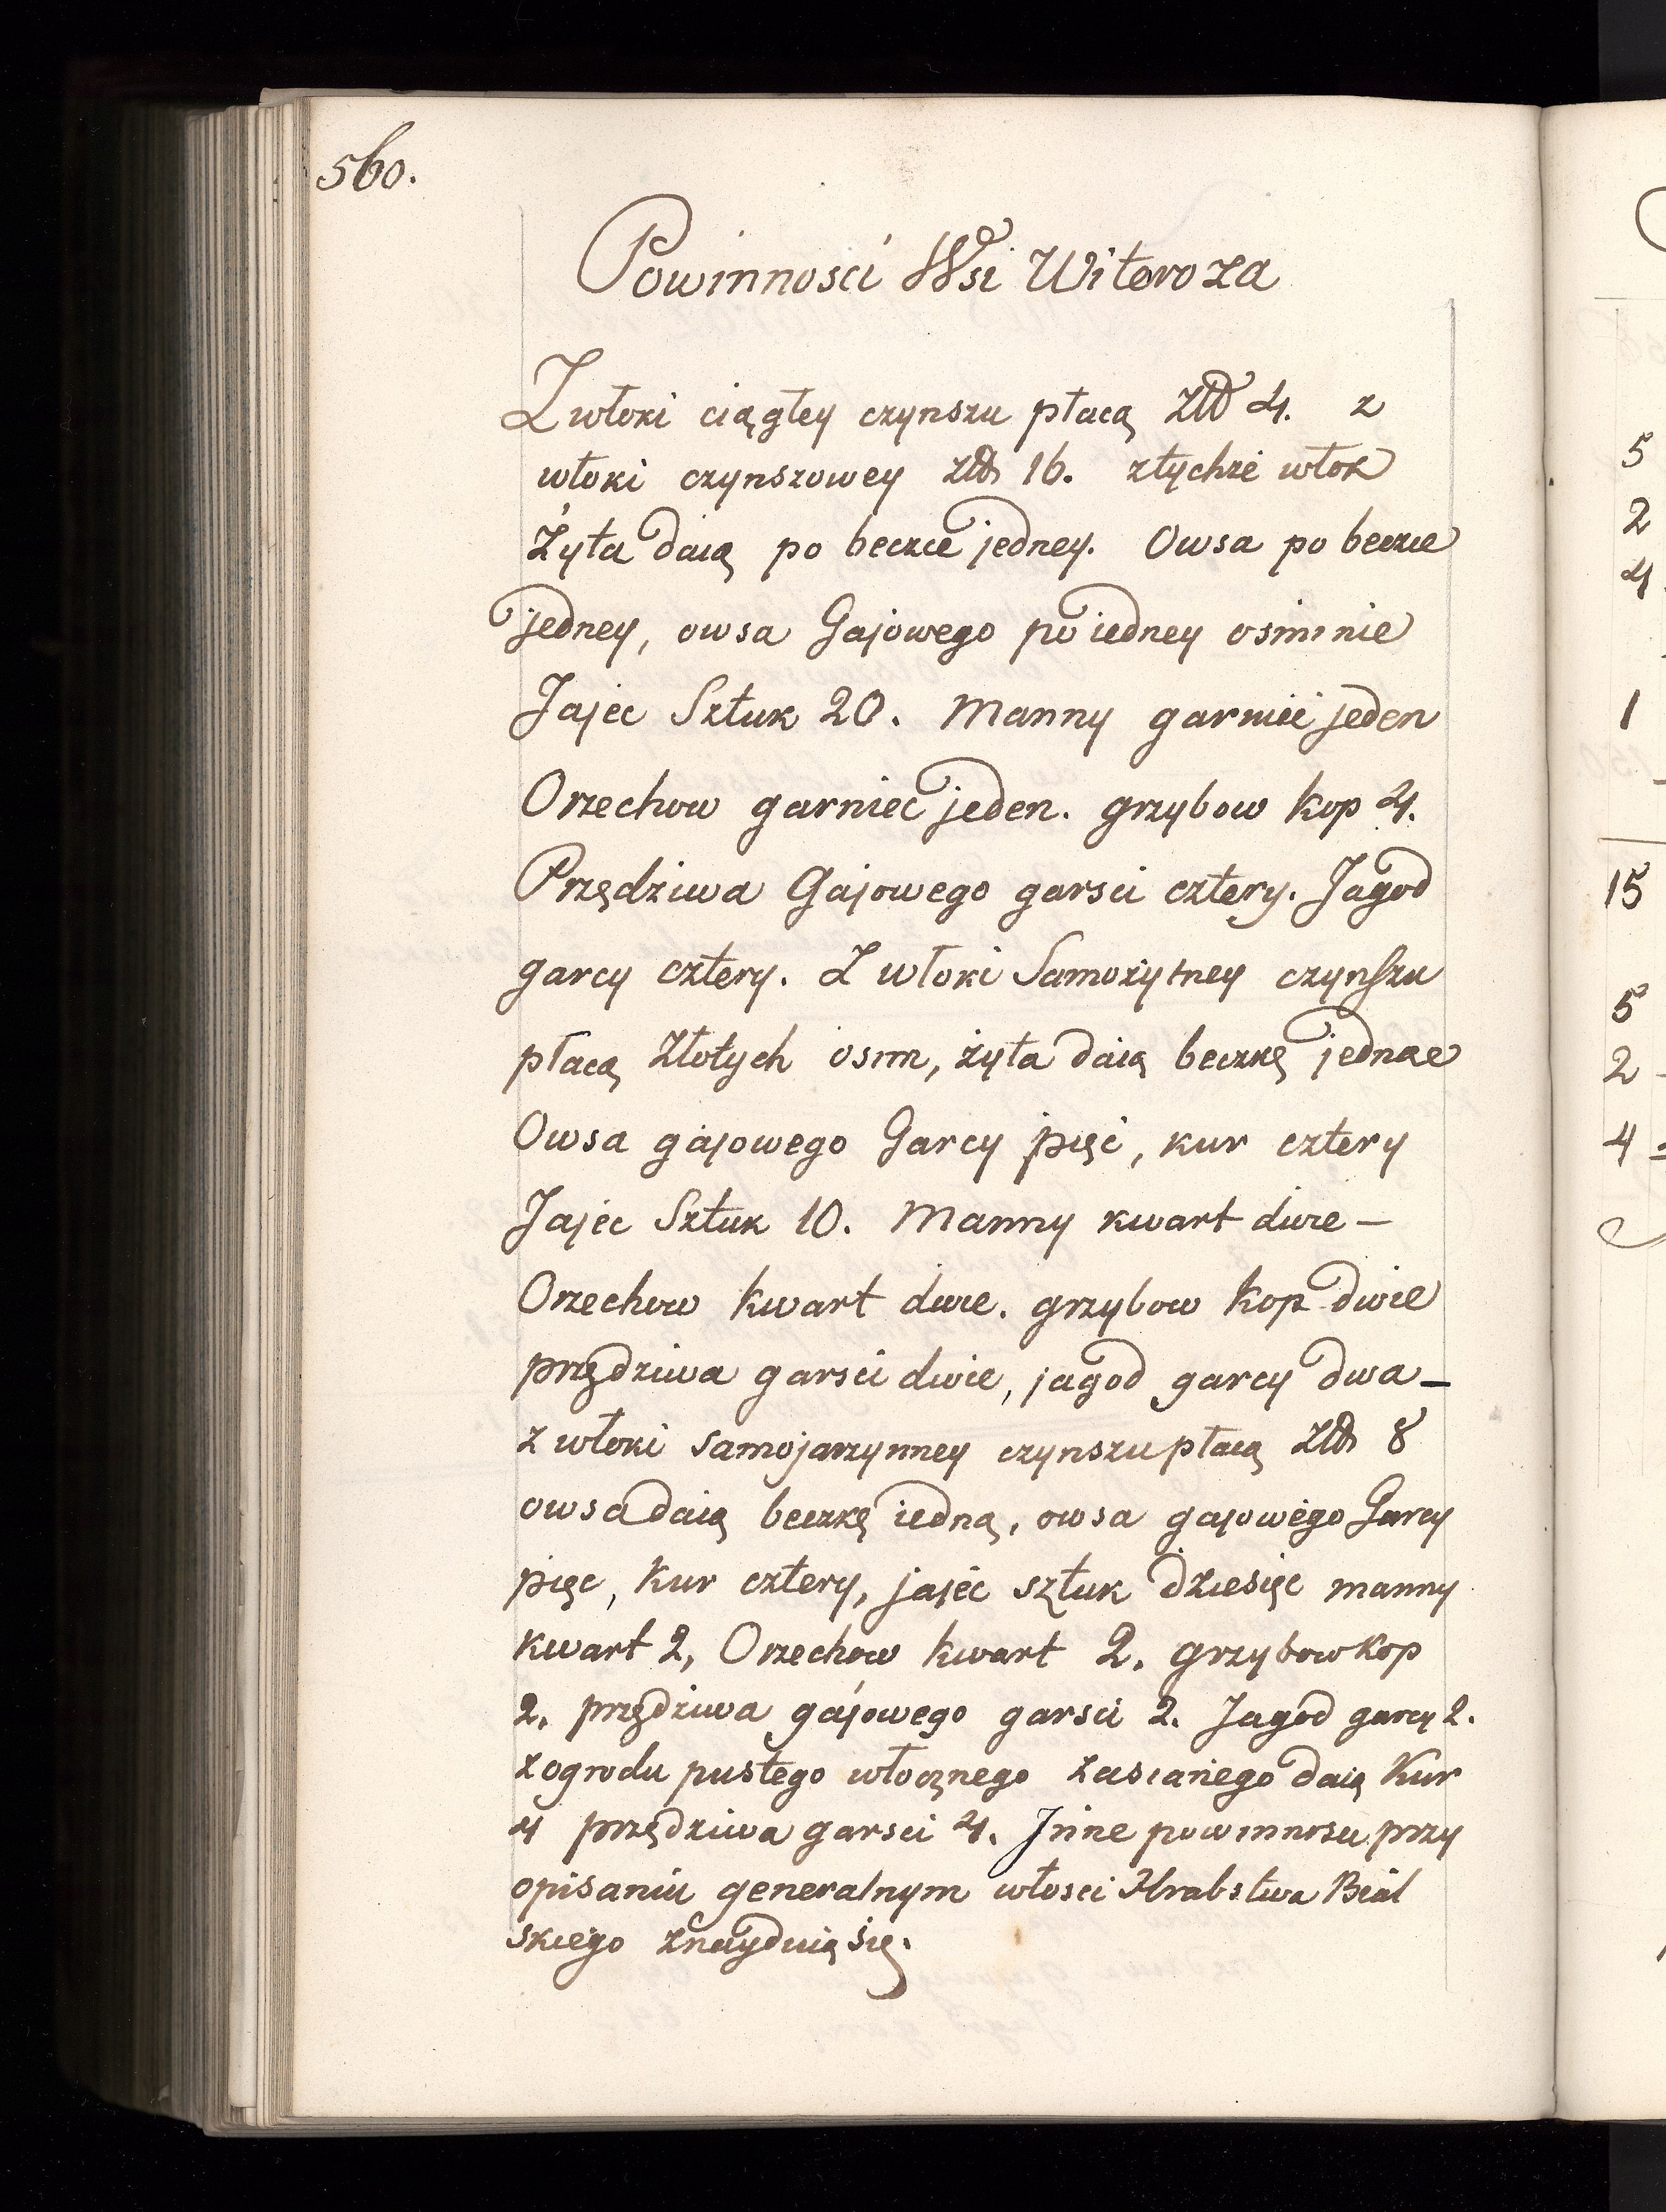 560.
Powinnosci Wsi Witoroza
Z włoki ciągłey czynszu płacą Złł 4. z
włoki czynszowey złł 16. z tychże włok
Żyta daią po beczce jedney. Owsa po beczce
jedney, owsa Gajowego po iedney osminie
Jajec Sztuk 20. Manny garniec jeden
Orzechow garniec jeden. grzybow kop 4.
Przędziwa Gajowego garsci cztery. Jagod
garcy cztery. Z włoki Samożytney czynszu
płacą Złotych osm, żyta daią beczkę jednae
Owsa gajowego Garcy pięc, kur cztery
Jajec Sztuk 10. Manny kwart dwie —
Orzechow kwart dwie. grzybow kop dwie
przędziwa garsci dwie, jagod garcy dwa —
z włoki samojarzynney czynszu płacą złł 8
owsa daią beczkę iedną, owsa gajowego Garcy
pięc, kur cztery, jajec sztuk dziesięc manny
kwart 2, Orzechow kwart 2. grzybow kop
2. przędziwa gajowego garsci 2. Jagod garcy 2.
z ogrodu pustego włocznego zasianego daią Kur
4 przędziwa garsci 4. Jnne powinnosci przy
opisaniu generalnym włosci Hrabstwa Bial
skiego znayduią się.
5
2
4
1
15
5
2
4